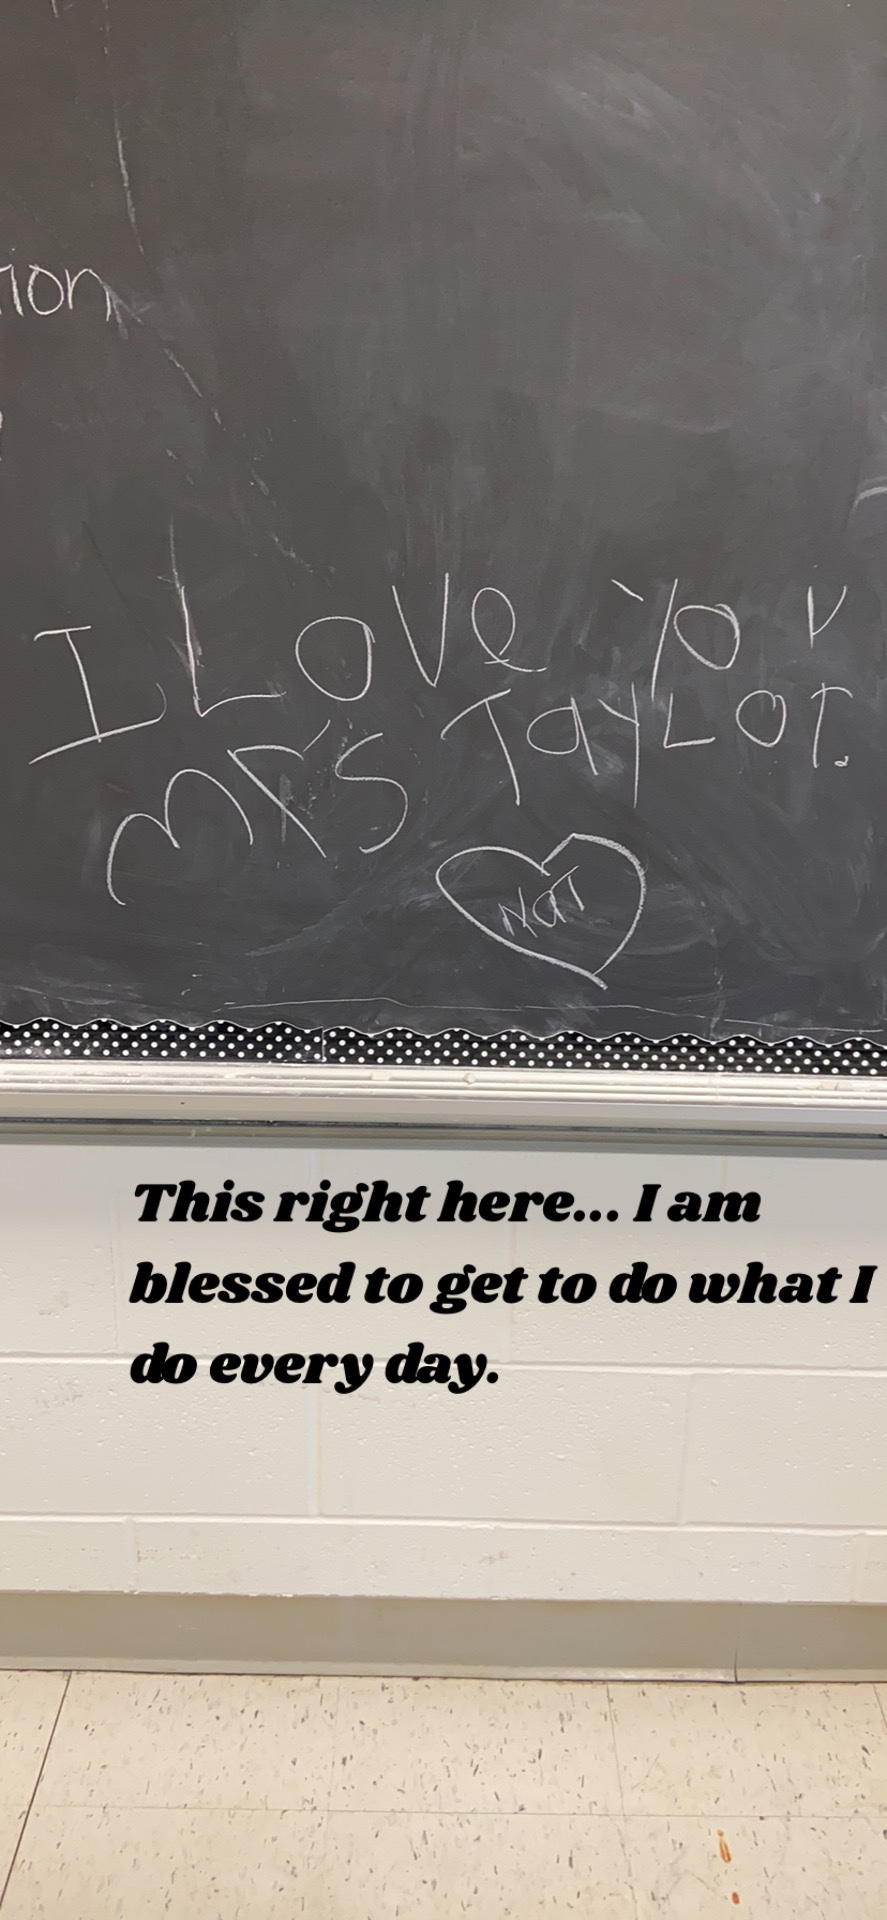 I Love you
Mrs Taylor.
Nat
This right here... I am
blessed to get to do what I
do every day.